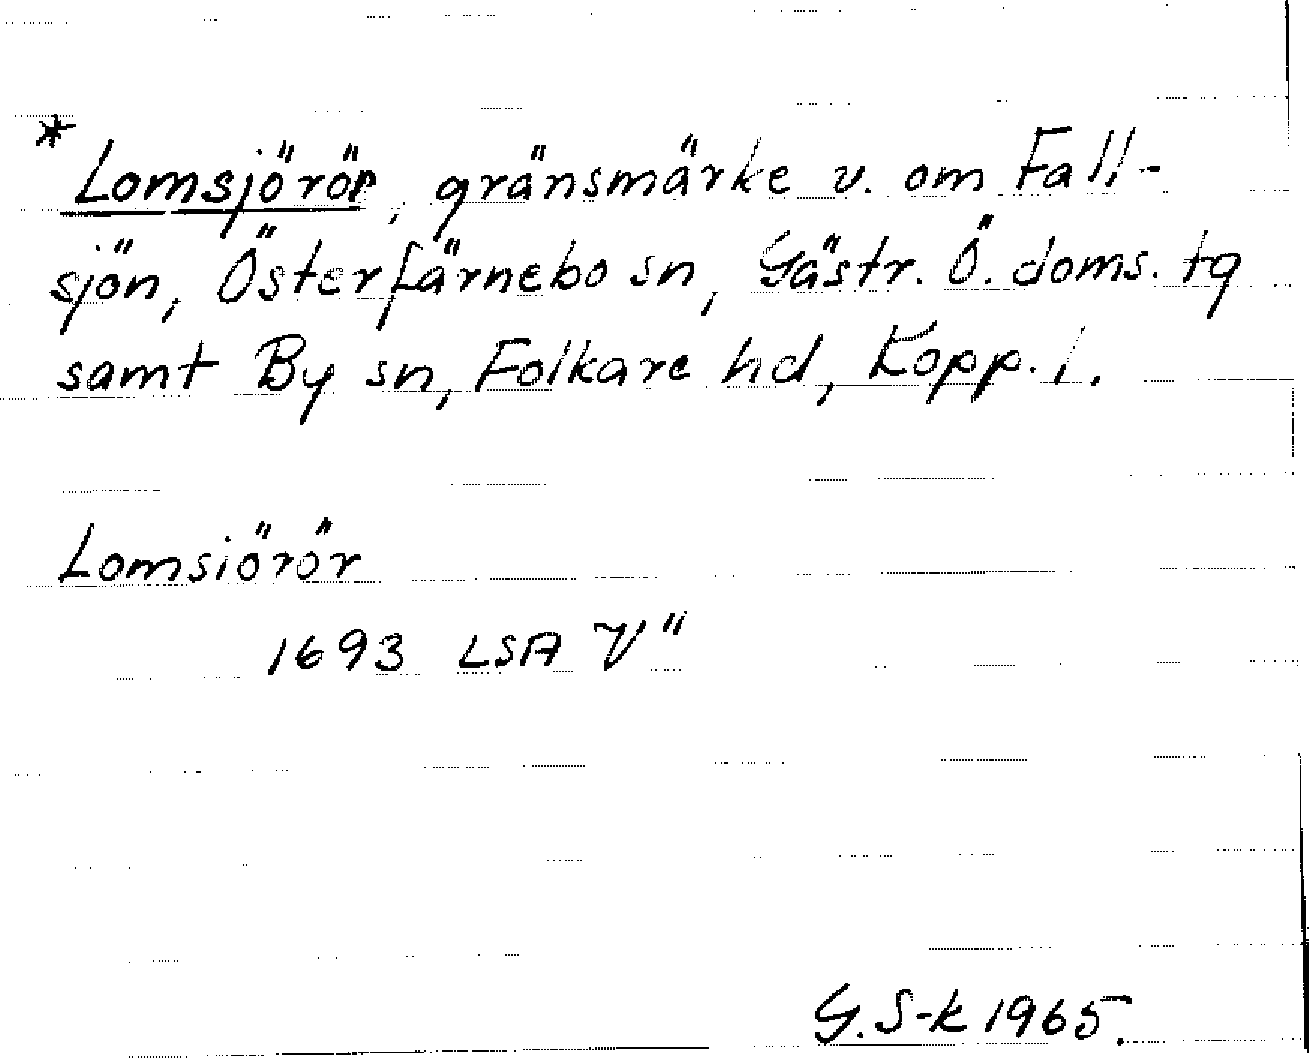 *Lomsjörör, gränsmärke v. om Fall-
sjön, Österfärnebo sn, Gästr. Ö. doms. tg
samt By sn, Folkare hd, Kopp. l.
Lomsiörör
1693 LSA V"
G. S-k 1965.